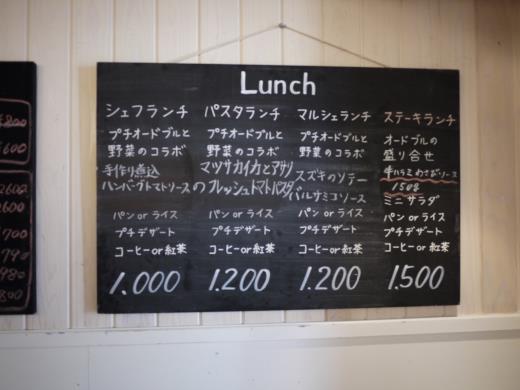 Lunch
シェフランチ
プチオードブルと
野菜のコラボ
手作り煮込
ハンバーグトマトソース
パン or ライス
プチデザート
コーヒーor紅茶
1.000
パスタランチ
プチオードブルと
野菜のコラボ
マツサカイカとアサリ
のフレッシュトマトパスタ
パン or ライス
プチデザート
コーヒーor紅茶
1.200
マルシェランチ
プチオードブルと
野菜のコラボ
スズキのソテー
バルサミコソース
パン or ライス
プチデザート
コーヒーor紅茶
1.200
ステーキランチ
オードブルの
盛り合せ
牛ハラミ わさびソース
150g
ミニサラダ
パン or ライス
プチデザート
コーヒーor紅茶
1.500